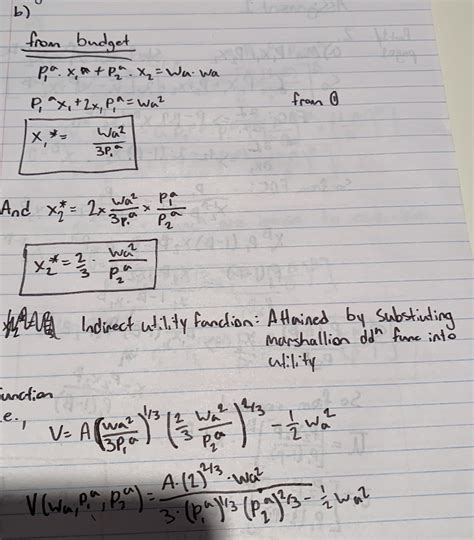 b)
from budget
P₁ᵃ · x₁ᵃ + P₂ᵃ · x₂ = Wa · Wa
P₁ᵃ x₁ + 2x₁ P₁ᵃ = Wa² from ①
x₁* = Wa² / 3P₁ᵃ
And x₂* = 2 x Wa² / 3P₁ᵃ x P₁ᵃ / P₂ᵃ
x₂* = 2/3 · Wa² / P₂ᵃ
Indirect utility function: Attained by substiuting
marshallion ddⁿ func into
utility
unction
e.,
V = A (Wa² / 3P₁ᵃ)^1/3 (2/3 Wa² / P₂ᵃ)^2/3 - 1/2 Wa²
V(Wa, P₁ᵃ, P₂ᵃ) = A·(2)^2/3 · Wa² / 3·(P₁ᵃ)^1/3 · (P₂ᵃ)^2/3 - 1/2 Wa²